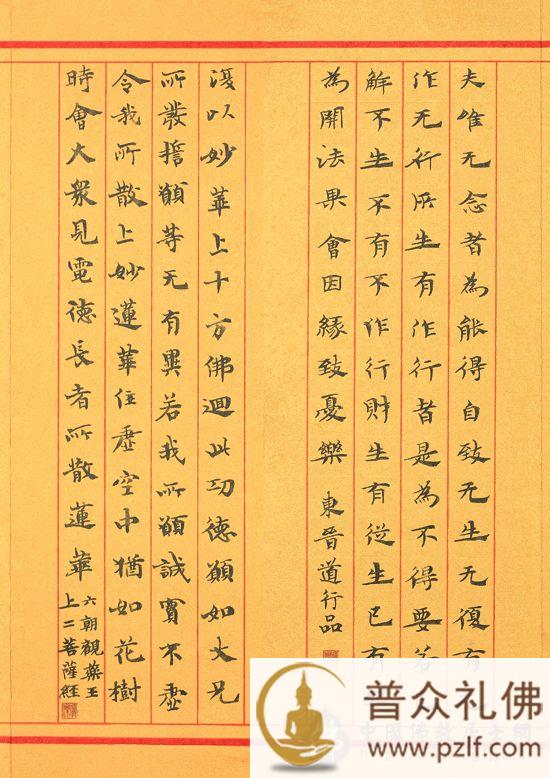 夫唯无念者為能得自致无生无復有
作无行所生有作行者是為不得要若
解不生不有不作行財生有從生已有
為開法果會因緣致憂樂 東晉道行品
復以妙華上十方佛迴此功德願如大兄
所發擔願等无有異若我所願誠實不虛
令我所散上妙蓮華住虛空中猶如花樹
時會大眾見電德長者所散蓮華 六朝觀藥王
上二菩薩經
普众礼佛
www.pzlf.com